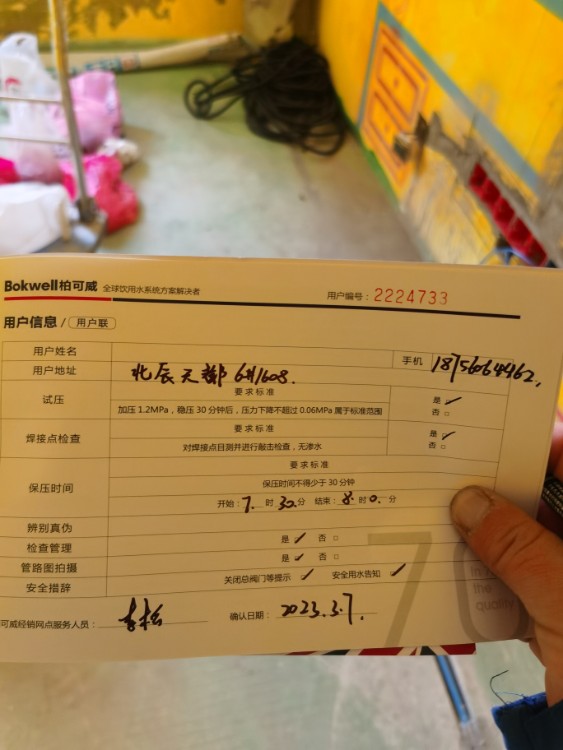 Bokwell柏可威 全球饮用水系统方案解决者 用户编号：2224733
用户信息 / 用户联
用户姓名 手机 18756064462
用户地址 北辰天都 6#1608
试压 要求标准 是 ✓
加压1.2MPa，稳压30分钟后，压力下降不超过0.06MPa属于标准范围 否 □
焊接点检查 要求标准 是 ✓
对焊接点目测并进行敲击检查，无渗水 否 □
保压时间 要求标准
保压时间不得少于30分钟
开始：7.时30分 结束：8.时0.分
辨别真伪
检查管理 是 ✓ 否 □
管路图拍摄 是 ✓ 否 □
安全措辞 关闭总阀门等提示 ✓ 安全用水告知 ✓
可威经销网点服务人员： 李松 确认日期： 2023.3.7.
70
the
quality